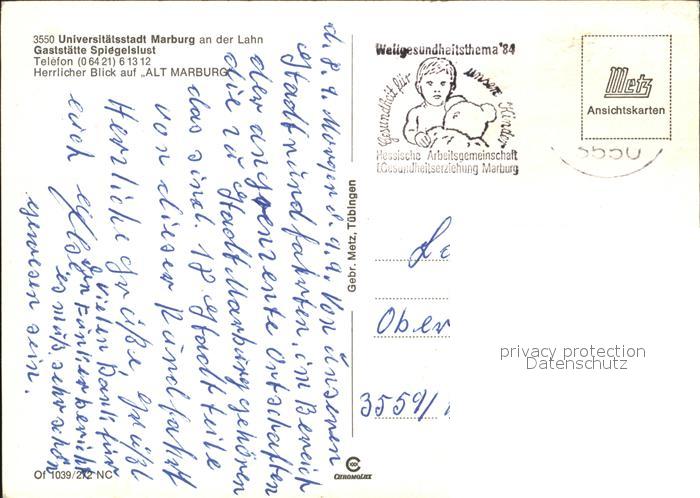 3550 Universitätsstadt Marburg an der Lahn
Gaststätte Spiegelslust
Telefon (0 64 21) 6 13 12
Herrlicher Blick auf „ALT MARBURG"
d. 8. 9. Morgens. 9.9. Von unseren
Stadtrundfahrten, im Bereich
der angrenzente Ortschaften
die zu Stadt Marburg gehören
das sind. 18 Stadtteile
von dieser Rundfahrt
Herzliche Grüße grüßt
euch
vielen Dank für
den
es muß sehr schön
gewesen sein.
Of 1039/2/2 NC
Gebr. Metz, Tübingen
CHROMOLUX
Weltgesundheitsthema '84
Gesundheit für unsere Kinder
Hessische Arbeitsgemeinschaft
f.Gesundheitserziehung Marburg
Metz
Ansichtskarten
3550
Ober
3559/
privacy protection
Datenschutz